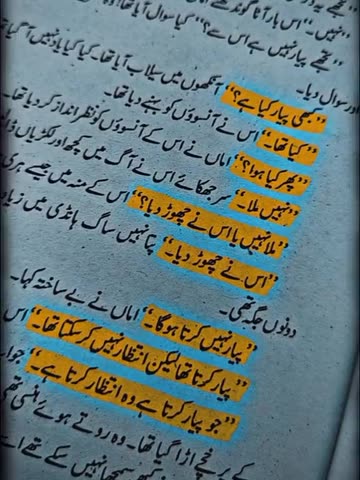 "نہیں۔" اس بار آٹا گوندھتے
"تجھے پیار نہیں ہے اس سے؟" کیا سوال آیا تھا، وہ
اور سوال دیا۔
"کبھی پیار کیا ہے؟" آنکھوں میں سیلاب آیا تھا۔ کیا کیا یاد نہیں آ گیا تھا
"کیا تھا۔" اس نے آنسوؤں کو بہنے دیا تھا۔
"پھر کیا ہوا؟" اماں نے اس کے آنسوؤں کو نظر انداز کر دیا تھا۔
"نہیں ملا۔" سر جھکائے اس نے آگ میں کچھ اور لکڑیاں ڈالیں
"ملا نہیں یا اس نے چھوڑ دیا؟" اس کے منہ میں جیسے ہری
"اس نے چھوڑ دیا۔" پتا نہیں ساگ ہانڈی میں زیادہ
دونوں جگہ تھی۔
"پیار نہیں کرتا ہوگا۔" اماں نے بے ساختہ کہا۔
"پیار کرتا تھا لیکن انتظار نہیں کر سکتا تھا۔" اس
"جو پیار کرتا ہے وہ انتظار کرتا ہے۔" جواب
کے پرخچے اڑا گیا تھا۔ وہ روتے ہوئے ہنسی تھی
سمجھا نہیں سکے تھے اسے